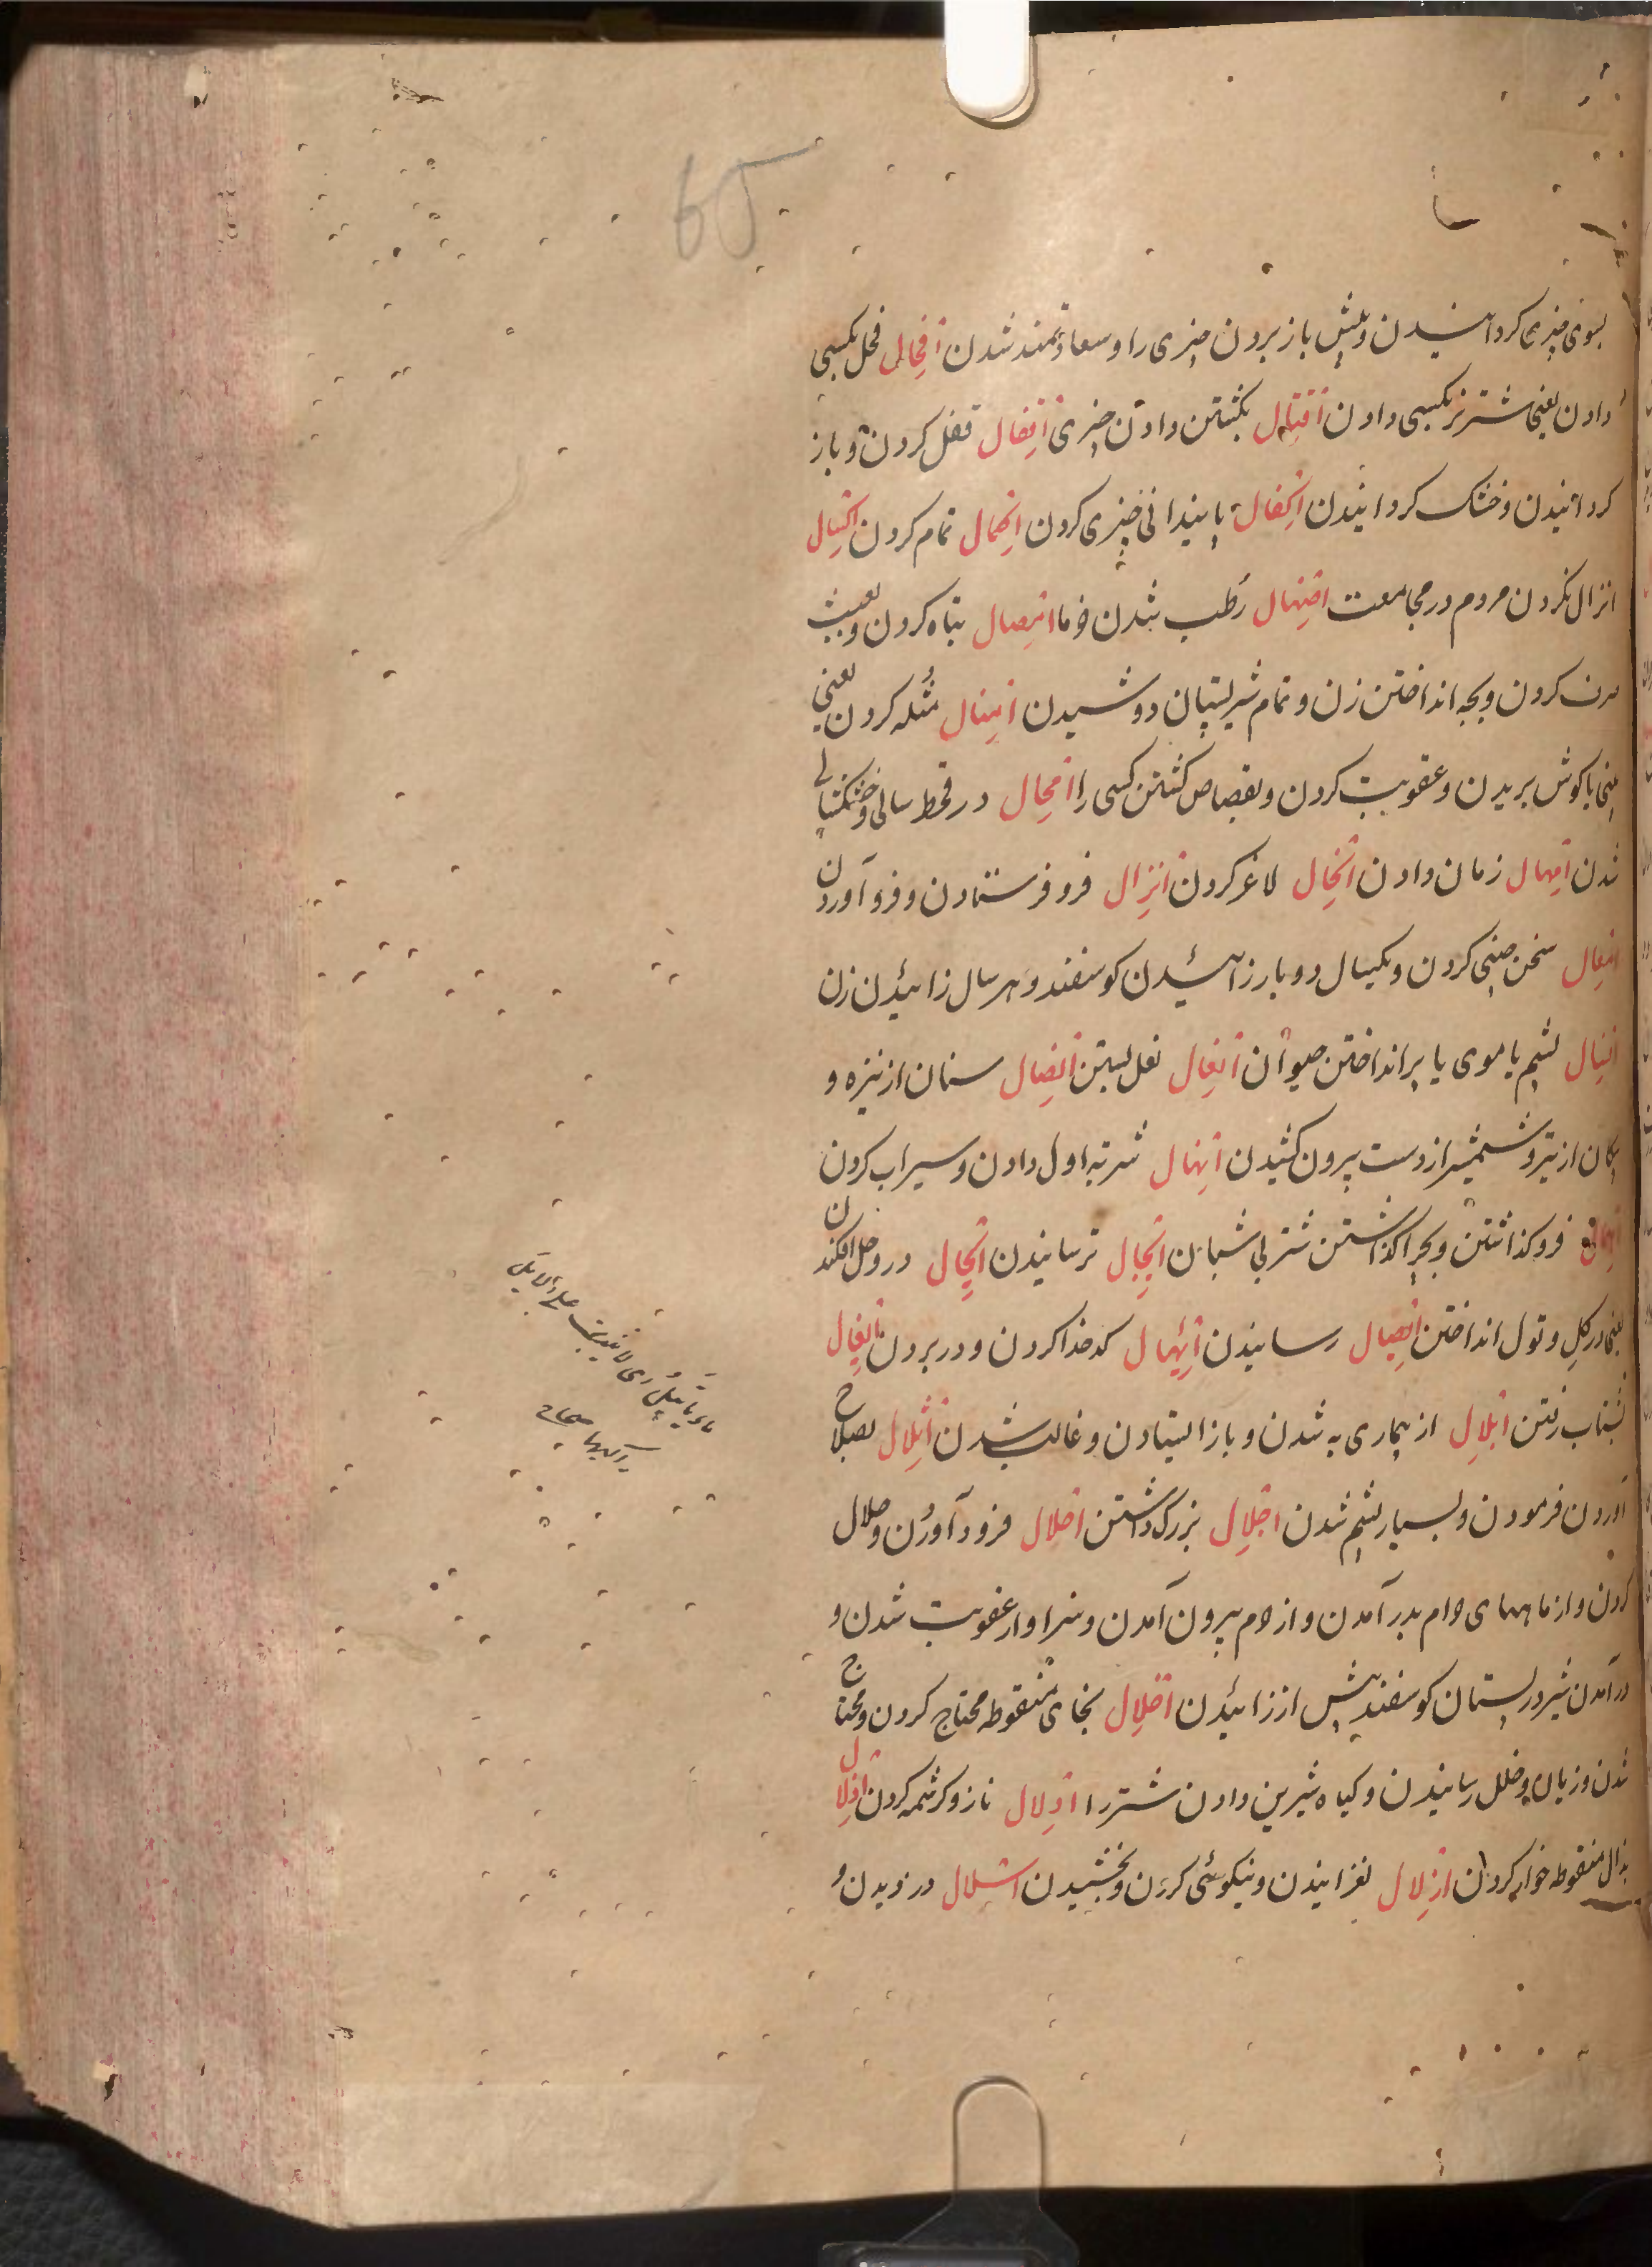 65
بسوی چیزی کردانیدن و پیش باز بردن چیزی را و سعادتمند شدن افحال فحل بکسی
دادن یعنی شتر نر بکسی دادن اقتال بکشتن دادن چیزی اقفال قفل کردن و باز
کردانیدن و خشک کردانیدن اکفال پایندانی چیزی کردن اکمال تمام کردن اکسال
انزال نکردن مردم در مجامعت امهال رطب شدن خرما امصال تباه کردن و بعبث
صرف کردن و بچه انداختن زن و تمام شیر پستان دوشیدن امثال مثله کردن یعنی
بینی یا کوش بریدن و عقوبت کردن و بقصاص کشتن کسی را امحال در قحط سالی و خشکسالی
شدن امهال زمان دادن انحال لاغر کردن انزال فرو فرستادن و فرو آوردن
امغال سخن چینی کردن و بکسال دو بار زائیدن کوسفند و هر سال زائیدن زن
انسال پشم یا موی یا پر انداختن حیوان انعال نعل بستن انصال سنان از نیزه و
پیکان از تیر و شمشیر از دست بیرون کشیدن انهال شربه اول دادن و سیراب کردن
فرو کذاشتن و بچرا کذاشتن شتر بی شبان ایجال ترسانیدن ایحال در وحل افکندن
یعنی در کل و تول انداختن ایصال رسانیدن ایهال کدخدا کردن و در بردن ایغال
بشتاب رفتن ابلال از بیماری به شدن و باز ایستادن و غالب شدن اثلال بصلاح
آوردن فرمودن و بسیار پشم شدن اجلال بزرک داشتن احلال فرود آوردن و حلال
کردن و از ماههای حرام بدر آمدن و از حرم بیرون آمدن و سزاوار عقوبت شدن و
در آمدن شیر در پستان کوسفند پیش از زائیدن اخلال بخای منقوطه محتاج کردن و محتاج
شدن و زیان و خلل رسانیدن و کیاه شیرین دادن شتر را ادلال ناز و کرشمه کردن اذلال
بذال منقوطه خوار کردن ازلال لغزانیدن و نیکوئی کردن و بخشیدن اشلال دزدیدن و